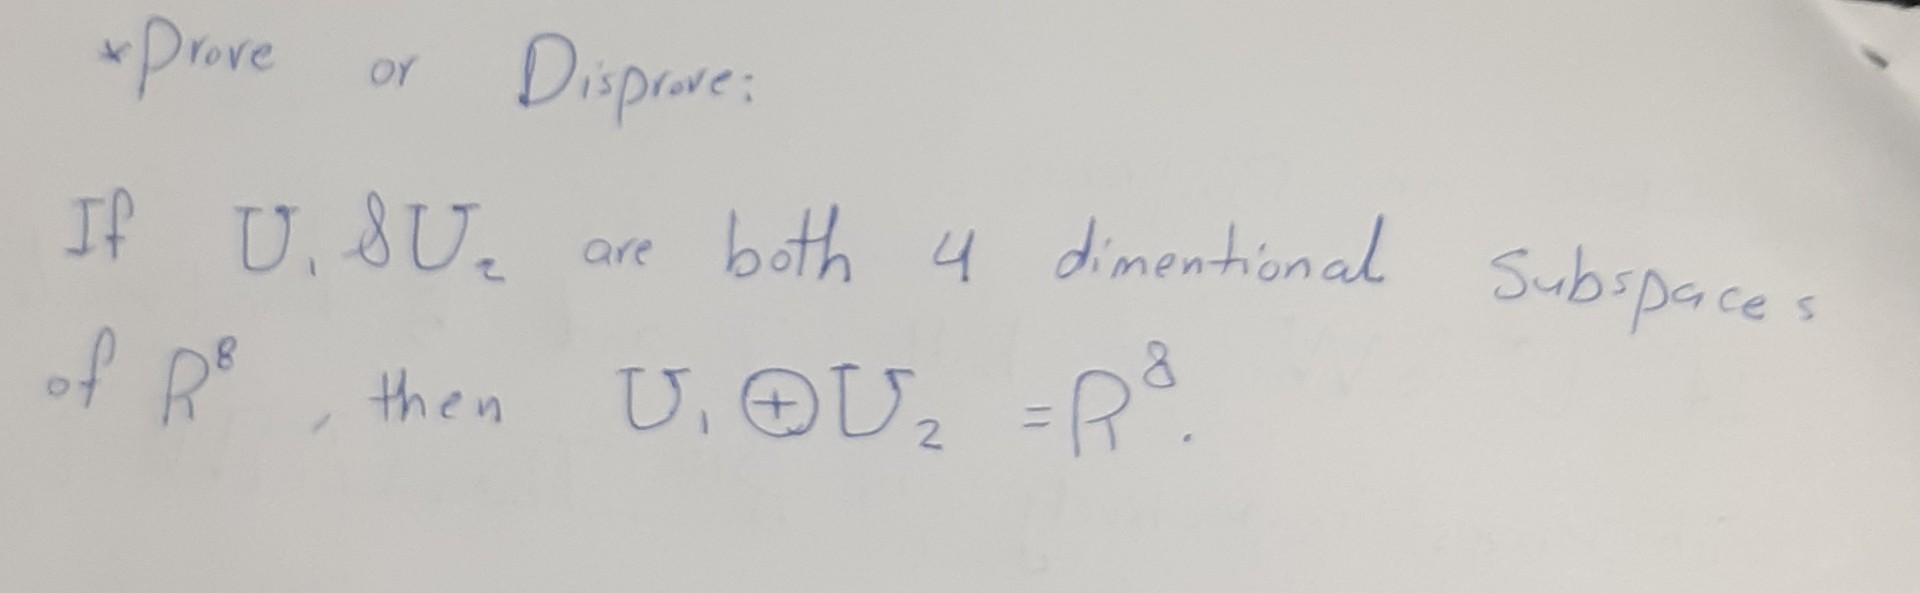 *Prove or Disprove:
If U₁ & U₂ are both 4 dimentional Subspaces
of R⁸, then U₁ ⊕ U₂ = R⁸.